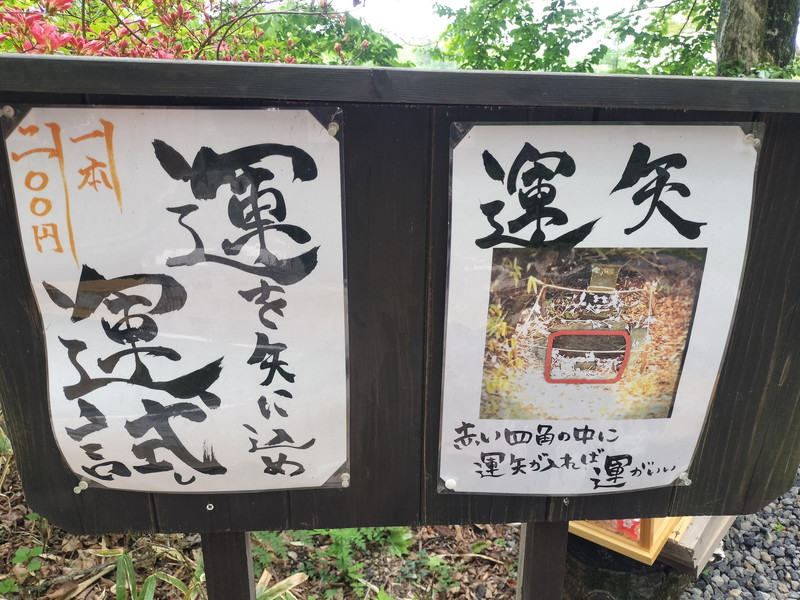 運を矢に込め
運試し
一本
二〇〇円
運矢
赤い四角の中に
運矢が入れば運がいい